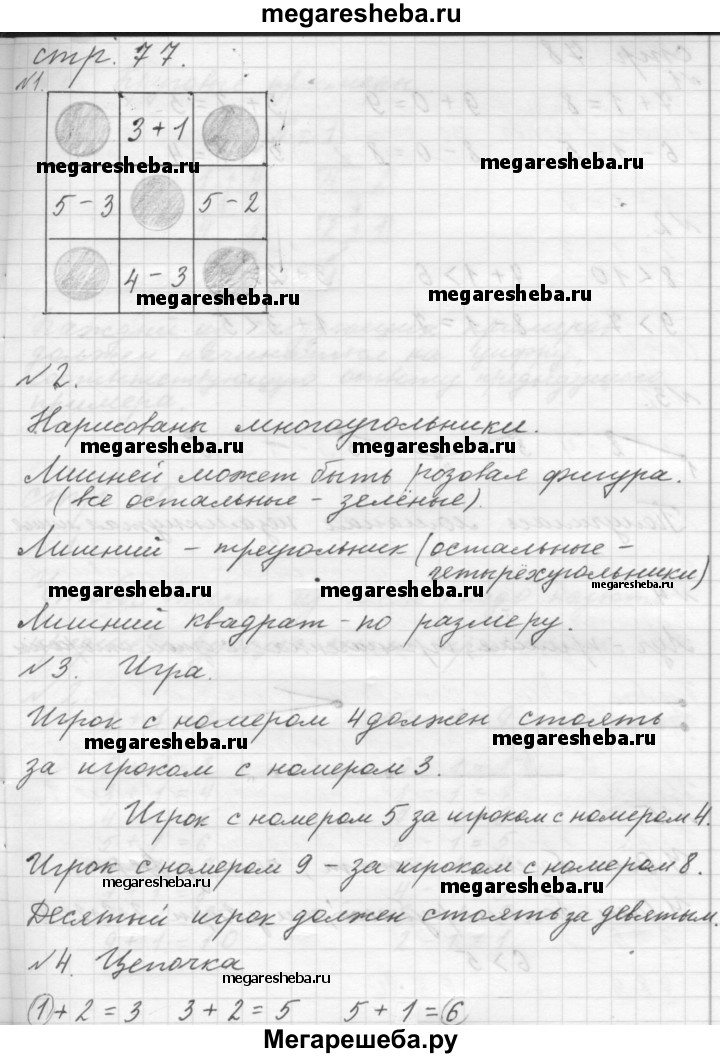 megaresheba.ru
стр. 77.
№1.
3 + 1
megaresheba.ru
megaresheba.ru
5 - 3 5 - 2
4 - 3
megaresheba.ru
megaresheba.ru
№2.
Нарисованы многоугольники.
megaresheba.ru megaresheba.ru
Лишней может быть розовая фигура.
(все остальные - зелёные).
Лишний - треугольник (остальные -
четырёхугольники)
megaresheba.ru megaresheba.ru megaresheba.ru
Лишний квадрат - по размеру.
№3. Игра.
Игрок с номером 4 должен стоять
megaresheba.ru megaresheba.ru
за игроком с номером 3.
Игрок с номером 5 за игроком с номером 4.
Игрок с номером 9 - за игроком с номером 8.
megaresheba.ru megaresheba.ru
Десятый игрок должен стоять за девятым.
№4. Цепочка
megaresheba.ru
1 + 2 = 3 3 + 2 = 5 5 + 1 = 6
Мегарешеба.ру